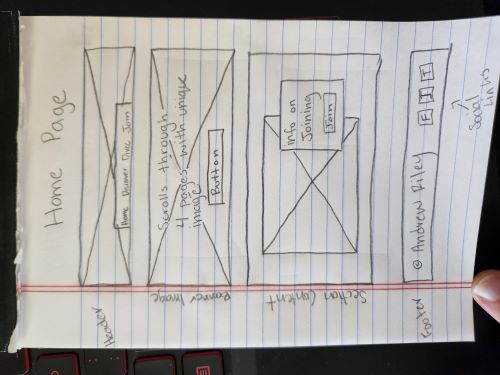 Home Page
Header
Home Discover Direc Join
Banner Image
Scrolls through
4 pages with unique
image
Button
Section Content
info on
Joining
Join
Footer
© Andrew Riley
F I T
Social
Links